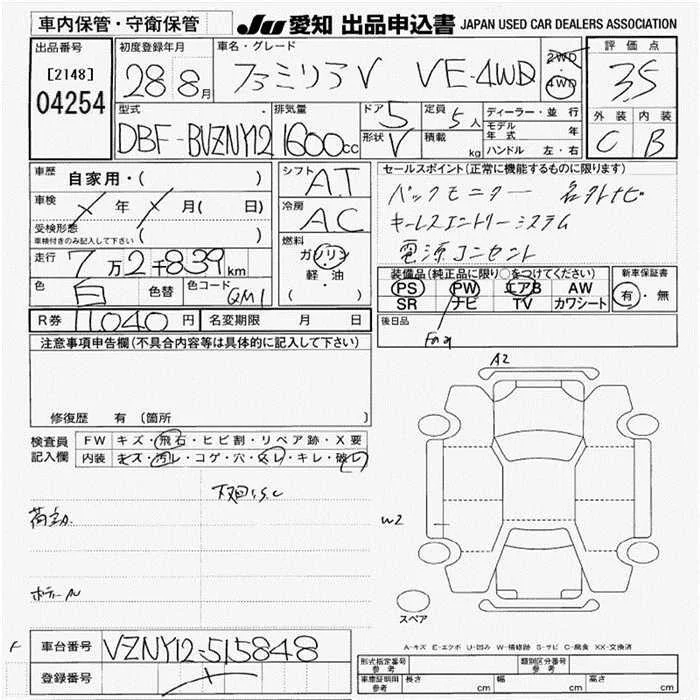 車内保管・守衛保管 JU 愛知 出品申込書 JAPAN USED CAR DEALERS ASSOCIATION
出品番号 初度登録年月 車名・グレード 評価点
[2148] 28 8月 ファミリアV VE-4WD 2WD・4WD 3.5
04254
型式 排気量 ドア 5 定員 5人 ディーラー・並行 外装 内装
DBF-BVZNY12 1600cc 形状 V 積載 kg モデル年式 年 C B
ハンドル 左・右
車歴 自家用・( ) シフト A.T セールスポイント(正常に機能するものに限ります)
車検 × 年 × 月( 日) 冷房 AC バックモニター 名外ナビ
受検形態 ( ) キーレスエントリーシステム
車検付きのみ記入して下さい 燃料 電源コンセント
走行 7万2千839km ガソリン
軽・油
( )
色 白 色替 色コード QM1
装備品(純正品に限り○をつけてください) 新車保証書
PS PW エアB AW 有・無
SR ナビ TV カワシート
R券 11040円 名変期限 月 日 後日品
注意事項申告欄(不具合内容等は具体的に記入して下さい)
A2
修復歴 有(箇所
検査員 FW キズ・飛石・ヒビ割・リペア跡・X要
記入欄 内装 キズ・汚レ・コゲ・穴・欠レ・キレ・破レ
下廻りS.C
W2
スペア
A-キズ E-エクボ U-凹み W-補修跡 S-サビ C-腐食 XX-交換済
車台番号 VZNY12-515848
登録番号
形式指定番号 参考 類別区分番号 参考
車庫証明用 参考 長さ cm 幅 cm 高さ cm